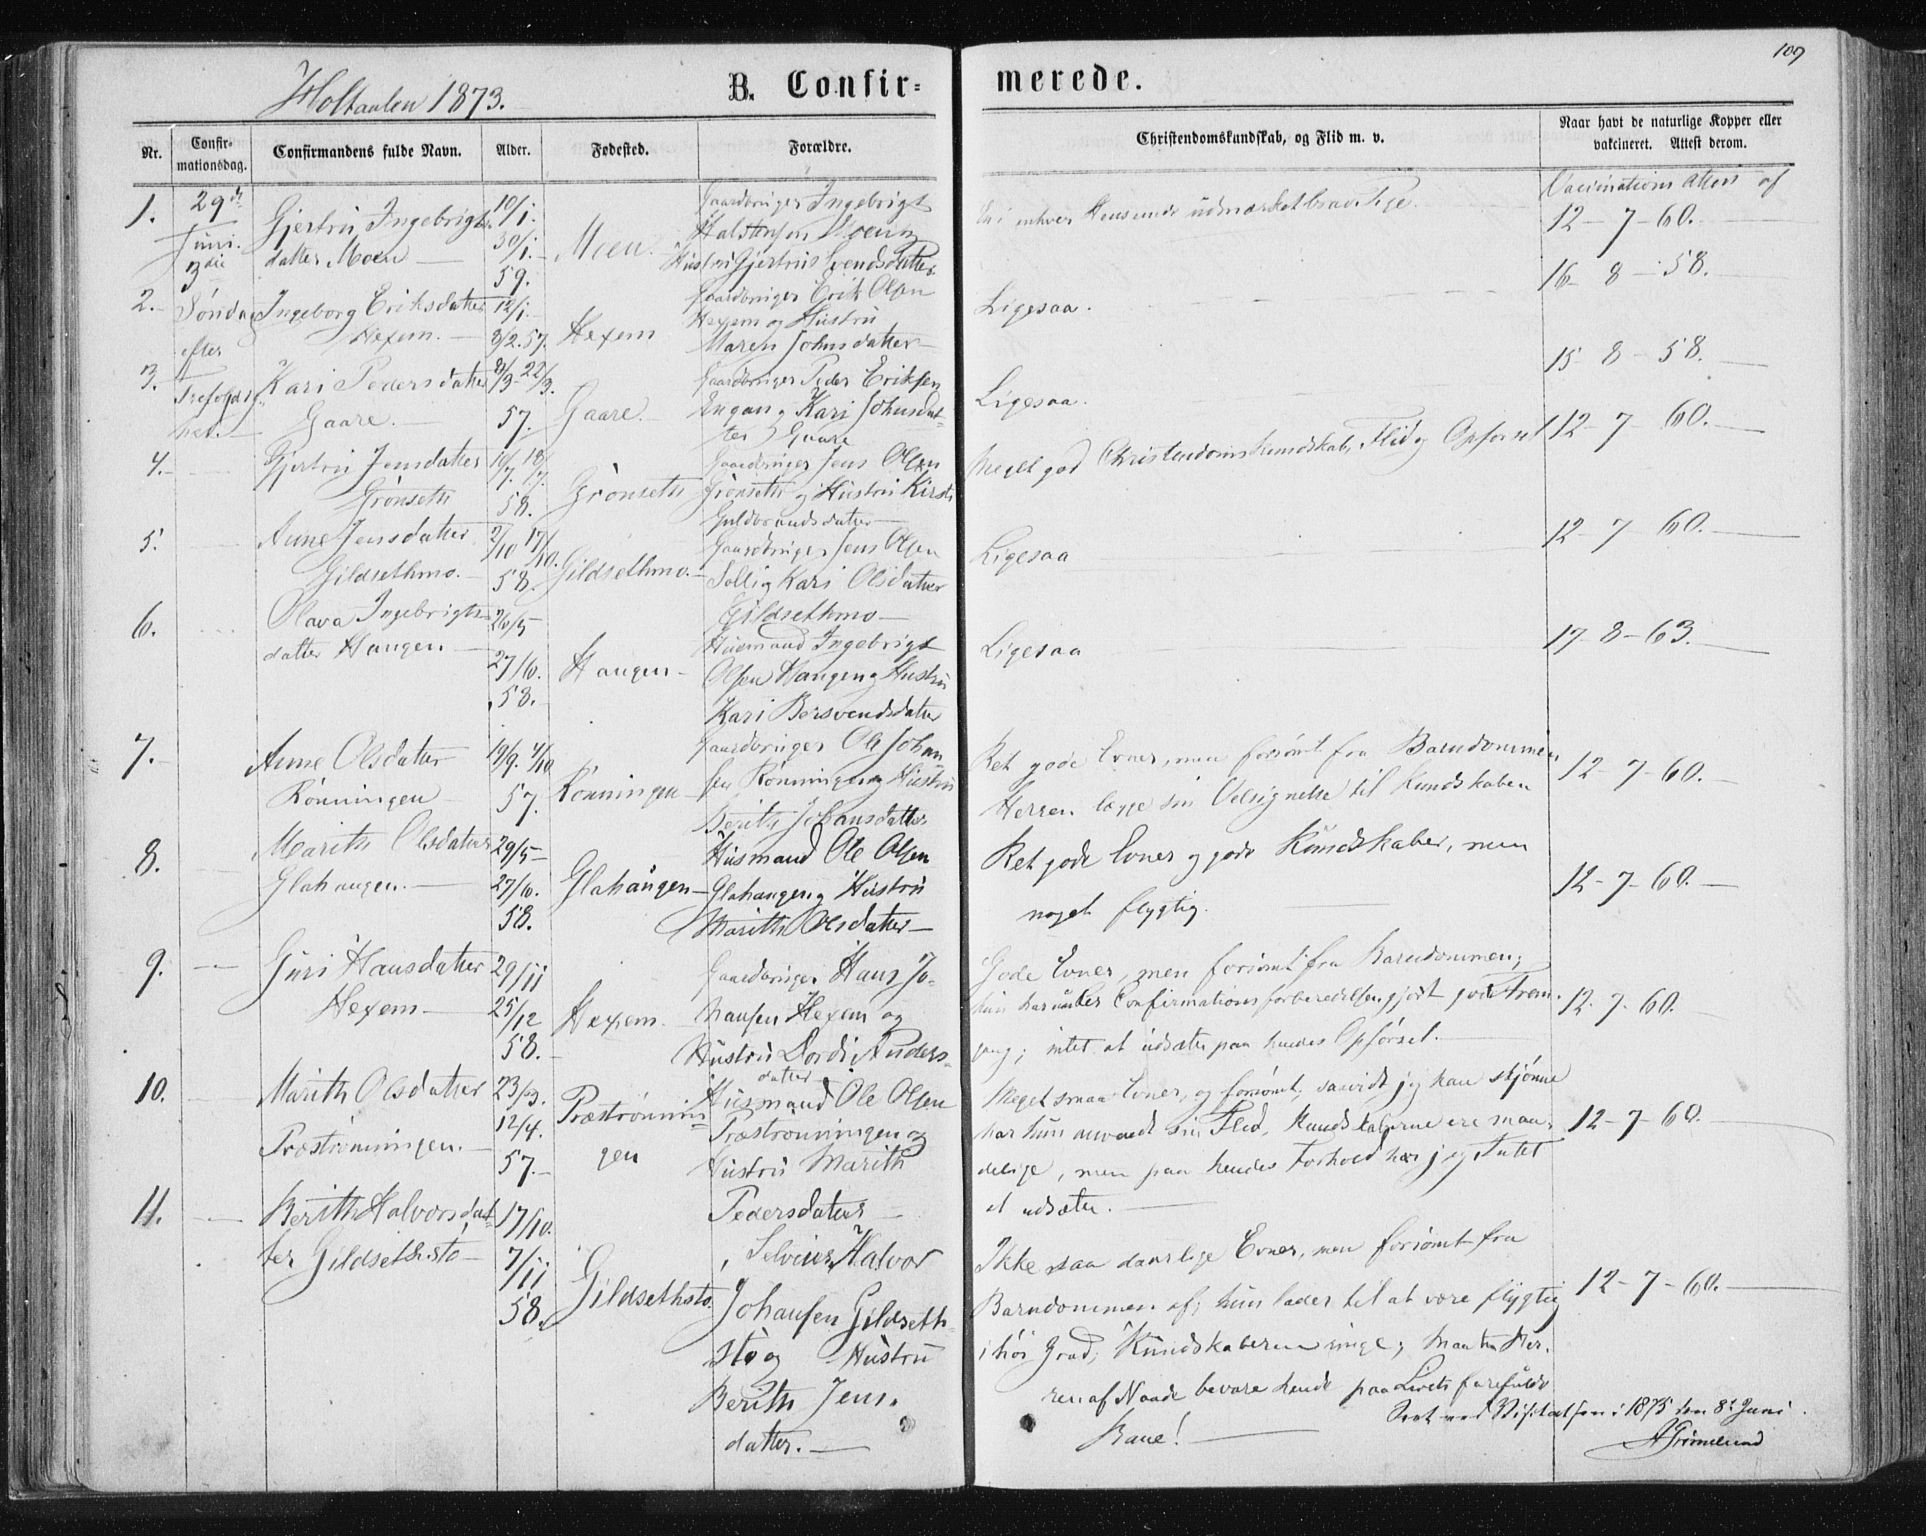 109
Holtaalen 1873.
B. Confirmerede.
Nr.
Confirmationsdag.
Confirmandens fulde Navn.
Alder.
Fødested.
Forældre.
Christendomskundskab, og Flid m. v.
Naar havt de naturlige Kopper eller
vakcineret. Attest derom.
Vaccinations Attest af
1.
29de
Juni.
3die
Søndag
efter
Trefoldig-
hed.
Gjertru Ingebrigts
datter Moen
10/1.
30/1.
59.
Moen.
Gaardbruger Ingebrigt
Halstensen Moen og
Hustru Gjertrud Svendsdatter
En i enhver Henseende udmærket brav Pige.
12-7-60.
2.
Ingeborg Eriksdatter
Hexem.
12/1.
8/2. 57.
Hexem
Gaardbruger Erik Olsen
Hexem og Hustru
Maren Johnsdatter
Ligesaa.
16-8-58.
3.
Kari Pedersdatter
Gaare.
8/3-22/3.
57.
Gaare.
Gaardbruger Peder Eriksen
Kari Johnsdat-
ter Gaare
Ligesaa.
15-8-58.
4.
Gjertru Jensdatter
Grønseth
10/7. 18/7.
58.
Grønseth
Gaardbruger Jens Olsen
Grønseth og Hustru Kirsti
Guldbrandsdatter
Meget god Christendomskundskab, Flid og Opførsel
12-7-60.
5.
Anne Jensdatter
Gildsethmo.
2/10 17/10.
58.
Gildsethmo.
Gaardbruger Jens Olsen
Solli og Kari Olsdatter
Gildsethmo
Ligesaa
12-7-60.
6.
Olava Ingebrigts
datter Haugen
26/5
27/6.
58.
Haugen
Husmand Ingebrigt
Olsen Haugen og Hustru
Kari Bersvendsdatter
Ligesaa
17-8-63.
7.
Anne Olsdatter
Rønningen
19/9. 4/10
57.
Rønningen
Gaardbruger Ole Johan-
sen Rønningen og Hustru
Berith Johansdatter
Ret gode Evner, men forsømt fra Barndommen
Herren lægge sin Velsignelse til Kundskaben
12-7-60.
8.
Marith Olsdatter
Glahaugen.
29/5
27/6.
58.
Glahaugen
Husmand Ole Olsen
Glahaugen og Hustru
Marith Olsdatter
Ret gode Evner og gode Kundskaber, men
noget flygtig.
12-7-60.
9.
Guri Hansdatter
Hexem
29/11
25/12
58.
Hexem.
Gaardbruger Hans Jo-
hansen Hexem og
Hustru Dordi Anders-
datter
Gode Evner, men forsømt fra Barndommen;
hun har under Confirmationsforberedelsen gjort god Frem-
gang; intet at udsætte paa hendes Opførsel.
12-7-60.
10.
Marith Olsdatter
Præstrønningen.
23/3.
12/4.
57.
Præstrønnin-
gen
Husmand Ole Olsen
Præstrønningen og
Hustru Marith
Pedersdatter
Meget smaa Evner, og forsømt, saavidt jeg kan skjønne
har hun anvendt sin Flid, Kundskaberne ere maa-
delige, men paa hendes Forhold har jeg Intet
at udsætte.
12-7-60.
11.
Berith Halvorsdat-
ter Gildsethsto
17/10.
7/11
58.
Gildsethsto.
Selveier Halvor
Johansen Gildseth-
sto og Hustru
Berith Jens-
datter.
Ikke saa daarlige Evner, men forsømt fra
Barndommen af; hun lader til at være flygtig
i høi Grad; Kundskaberne ringe; maatte Her-
ren af Naade bevare hende paa Livets farefulde
Bane!
12-7-60.
Seet ved Visitatsen i 1875 den 8de Juni.
A Grimelund